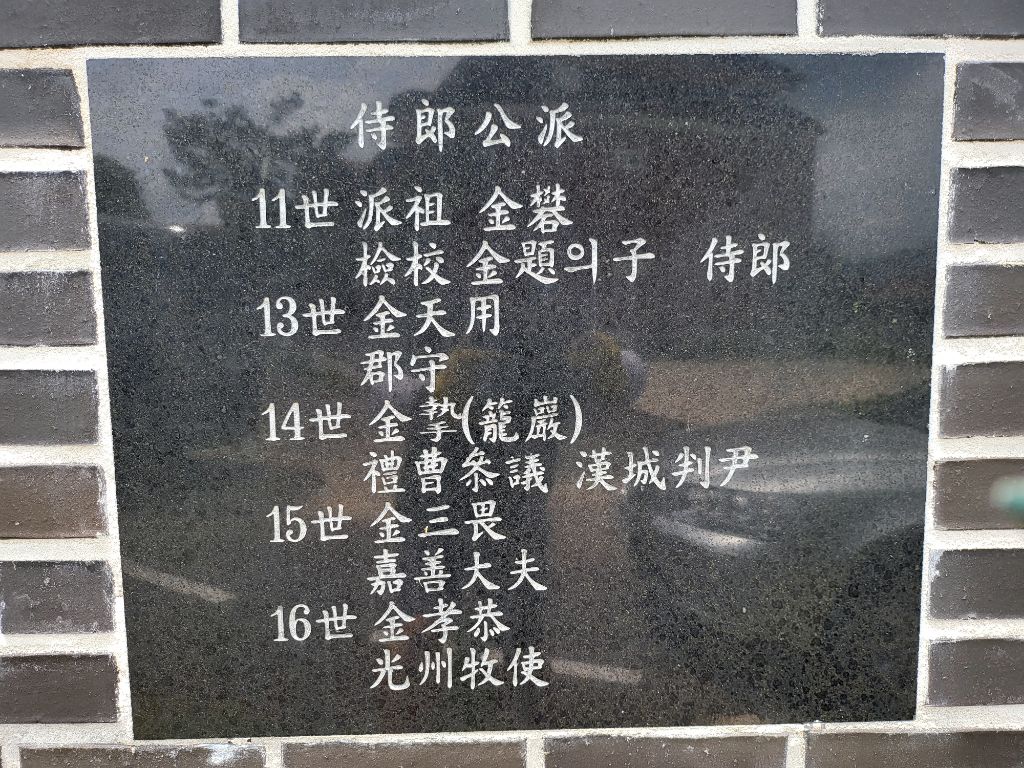 侍郎公派
11世 派祖 金礬
檢校 金題의子 侍郎
13世 金天用
郡守
14世 金摯(籠巖)
禮曹叅議 漢城判尹
15世 金三畏
嘉善大夫
16世 金孝恭
光州牧使